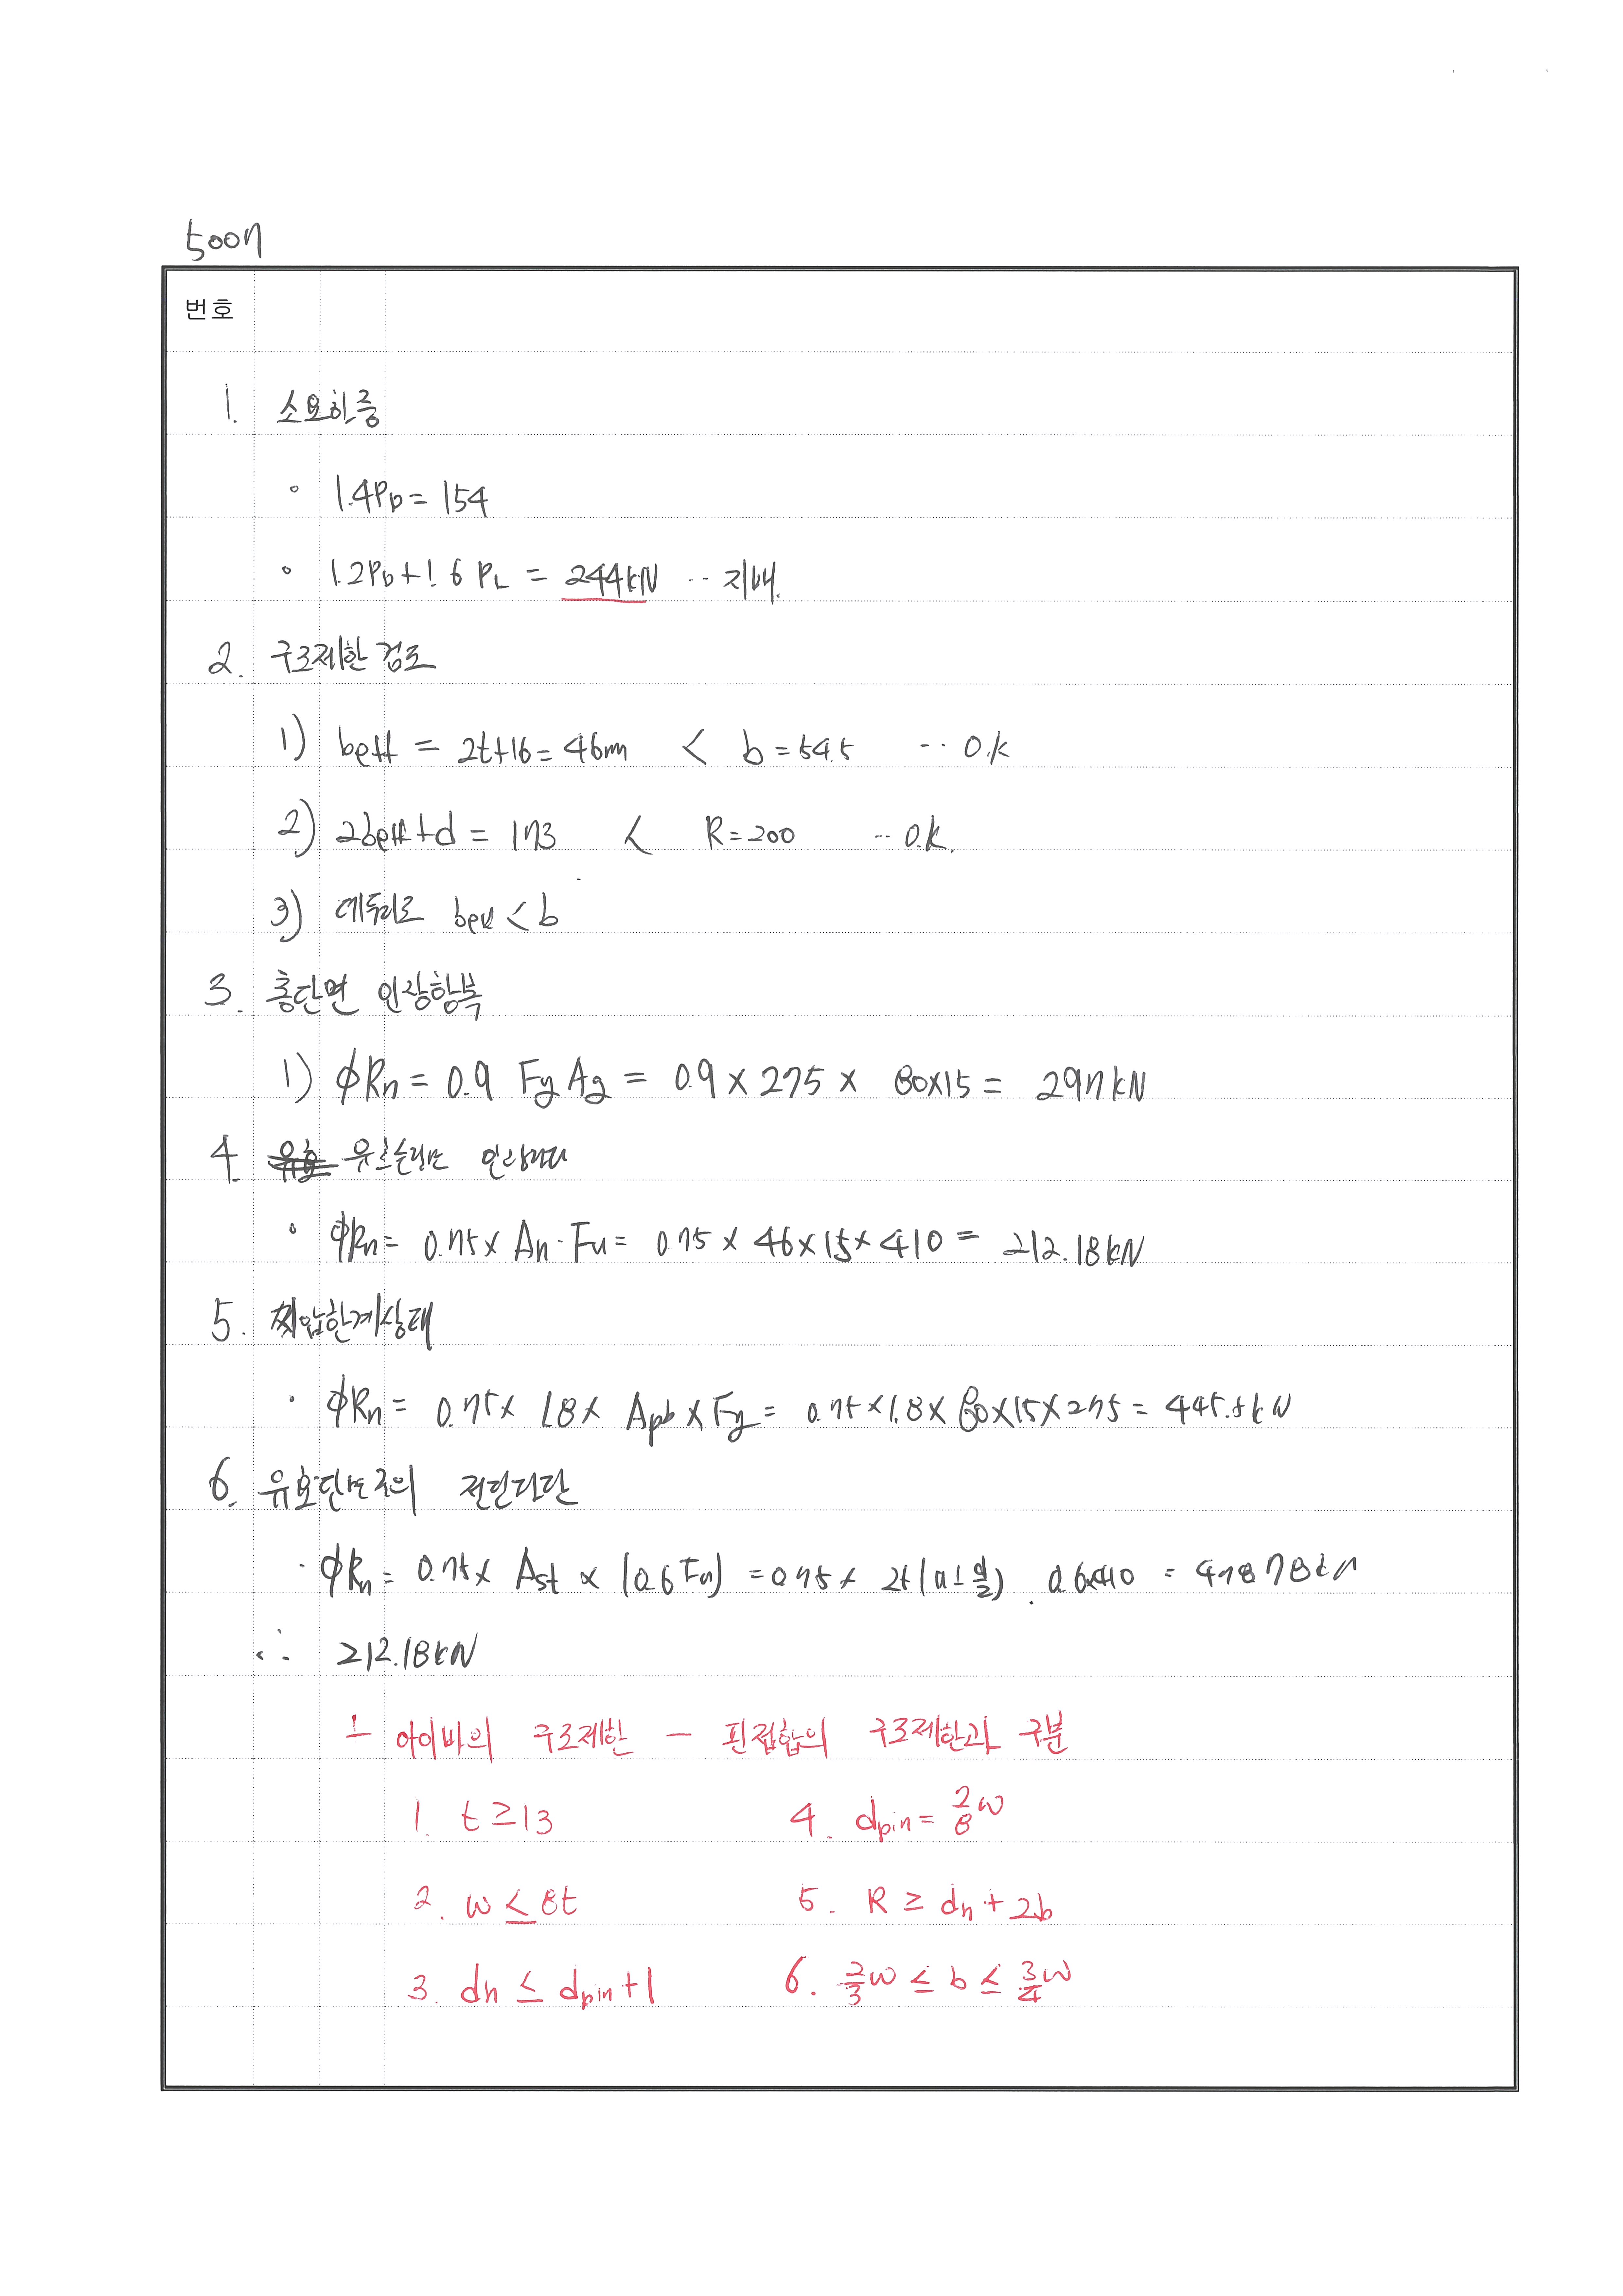 500n
번호
1. 소요하중
◦ 1.4PD = 154
◦ 1.2PD + 1.6 PL = 244kN ‥ 지배.
2. 구조제한 검토
1) beff = 2t+16 = 46mm < b = 54.5 ‥ O.K
2) 2beff + d = 173 < R = 200 ‥ O.K.
3) 테두리로 beff < b
3. 총단면 인장항복
1) ϕRn = 0.9 Fy Ag = 0.9 × 275 × 80×15 = 297 kN
4. 유효순단면 인장파단
◦ ϕRn = 0.75 × An · Fu = 0.75 × 46 × 15 × 410 = 212.18 kN
5. 지압한계상태
· ϕRn = 0.75 × 1.8 × Apb × Fy = 0.75 × 1.8 × 80×15×275 = 445.5 kN
6. 유효단면적의 전단파단
· ϕRn = 0.75 × Asf × (0.6 Fu) = 0.75 × 2t (a + d/2) · 0.6×410 = 478.78 kN
∴ 212.18 kN
- 아이바의 구조제한 - 핀접합의 구조제한과 구분
1. t ≥ 13 4. dpin = 7/8 w
2. w ≤ 8t 5. R ≥ dh + 2b
3. dh ≤ dpin + 1 6. 2/3 w ≤ b ≤ 3/4 w